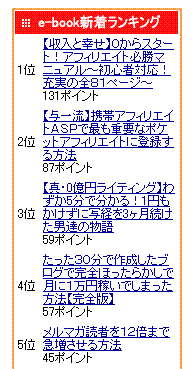 e-book新着ランキング
【収入と幸せ】0からスター
ト！アフィリエイト必勝マ
1位 ニュアル～初心者対応！
充実の全81ページ～
131ポイント
【与一流】携帯アフィリエイ
トASPで最も重要なポケ
2位 ットアフィリエイトに登録す
る方法
87ポイント
【真・0億円ライティング】わ
ずか5分で分かる！1円も
3位 かけずに写経を3ヶ月続け
た男達の物語
59ポイント
たった30分で作成したブ
ログで完全ほったらかしで
4位 月に1万円稼いでしまった
方法【完全版】
57ポイント
メルマガ読者を12倍まで
5位 急増させる方法
45ポイント